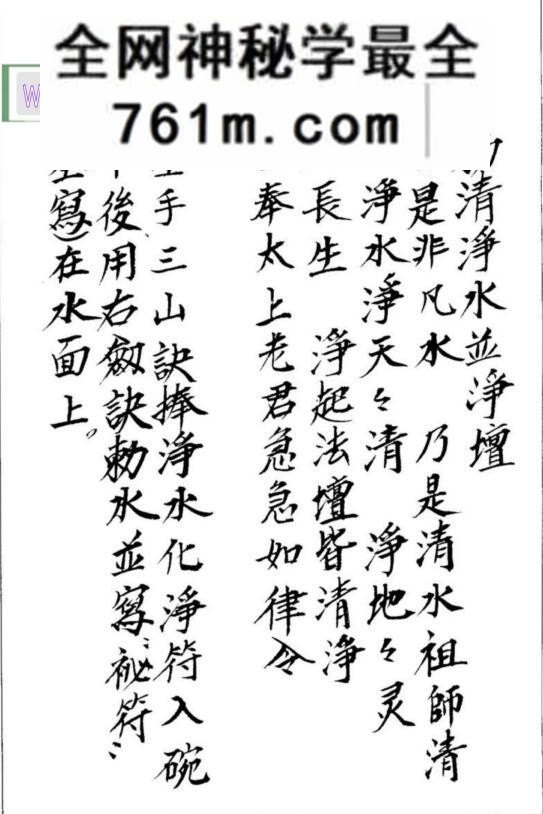 全网神秘学最全
761m.com
W
清淨水並淨壇
是非凡水 乃是清水祖師清
淨水淨天々清 淨地々灵
長生 淨起法壇皆清淨
奉太上老君急急如律令
手三山訣捧淨水化淨符入碗
後用右劍訣勅水並寫祕符
寫在水面上。